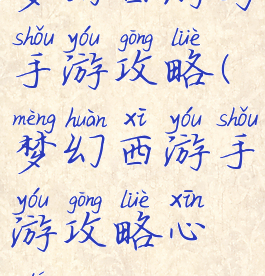 shǒu yóu gōng lüè
手游攻略(
mèng huàn xī yóu shǒu
梦幻西游手
yóu gōng lüè xīn
游攻略心